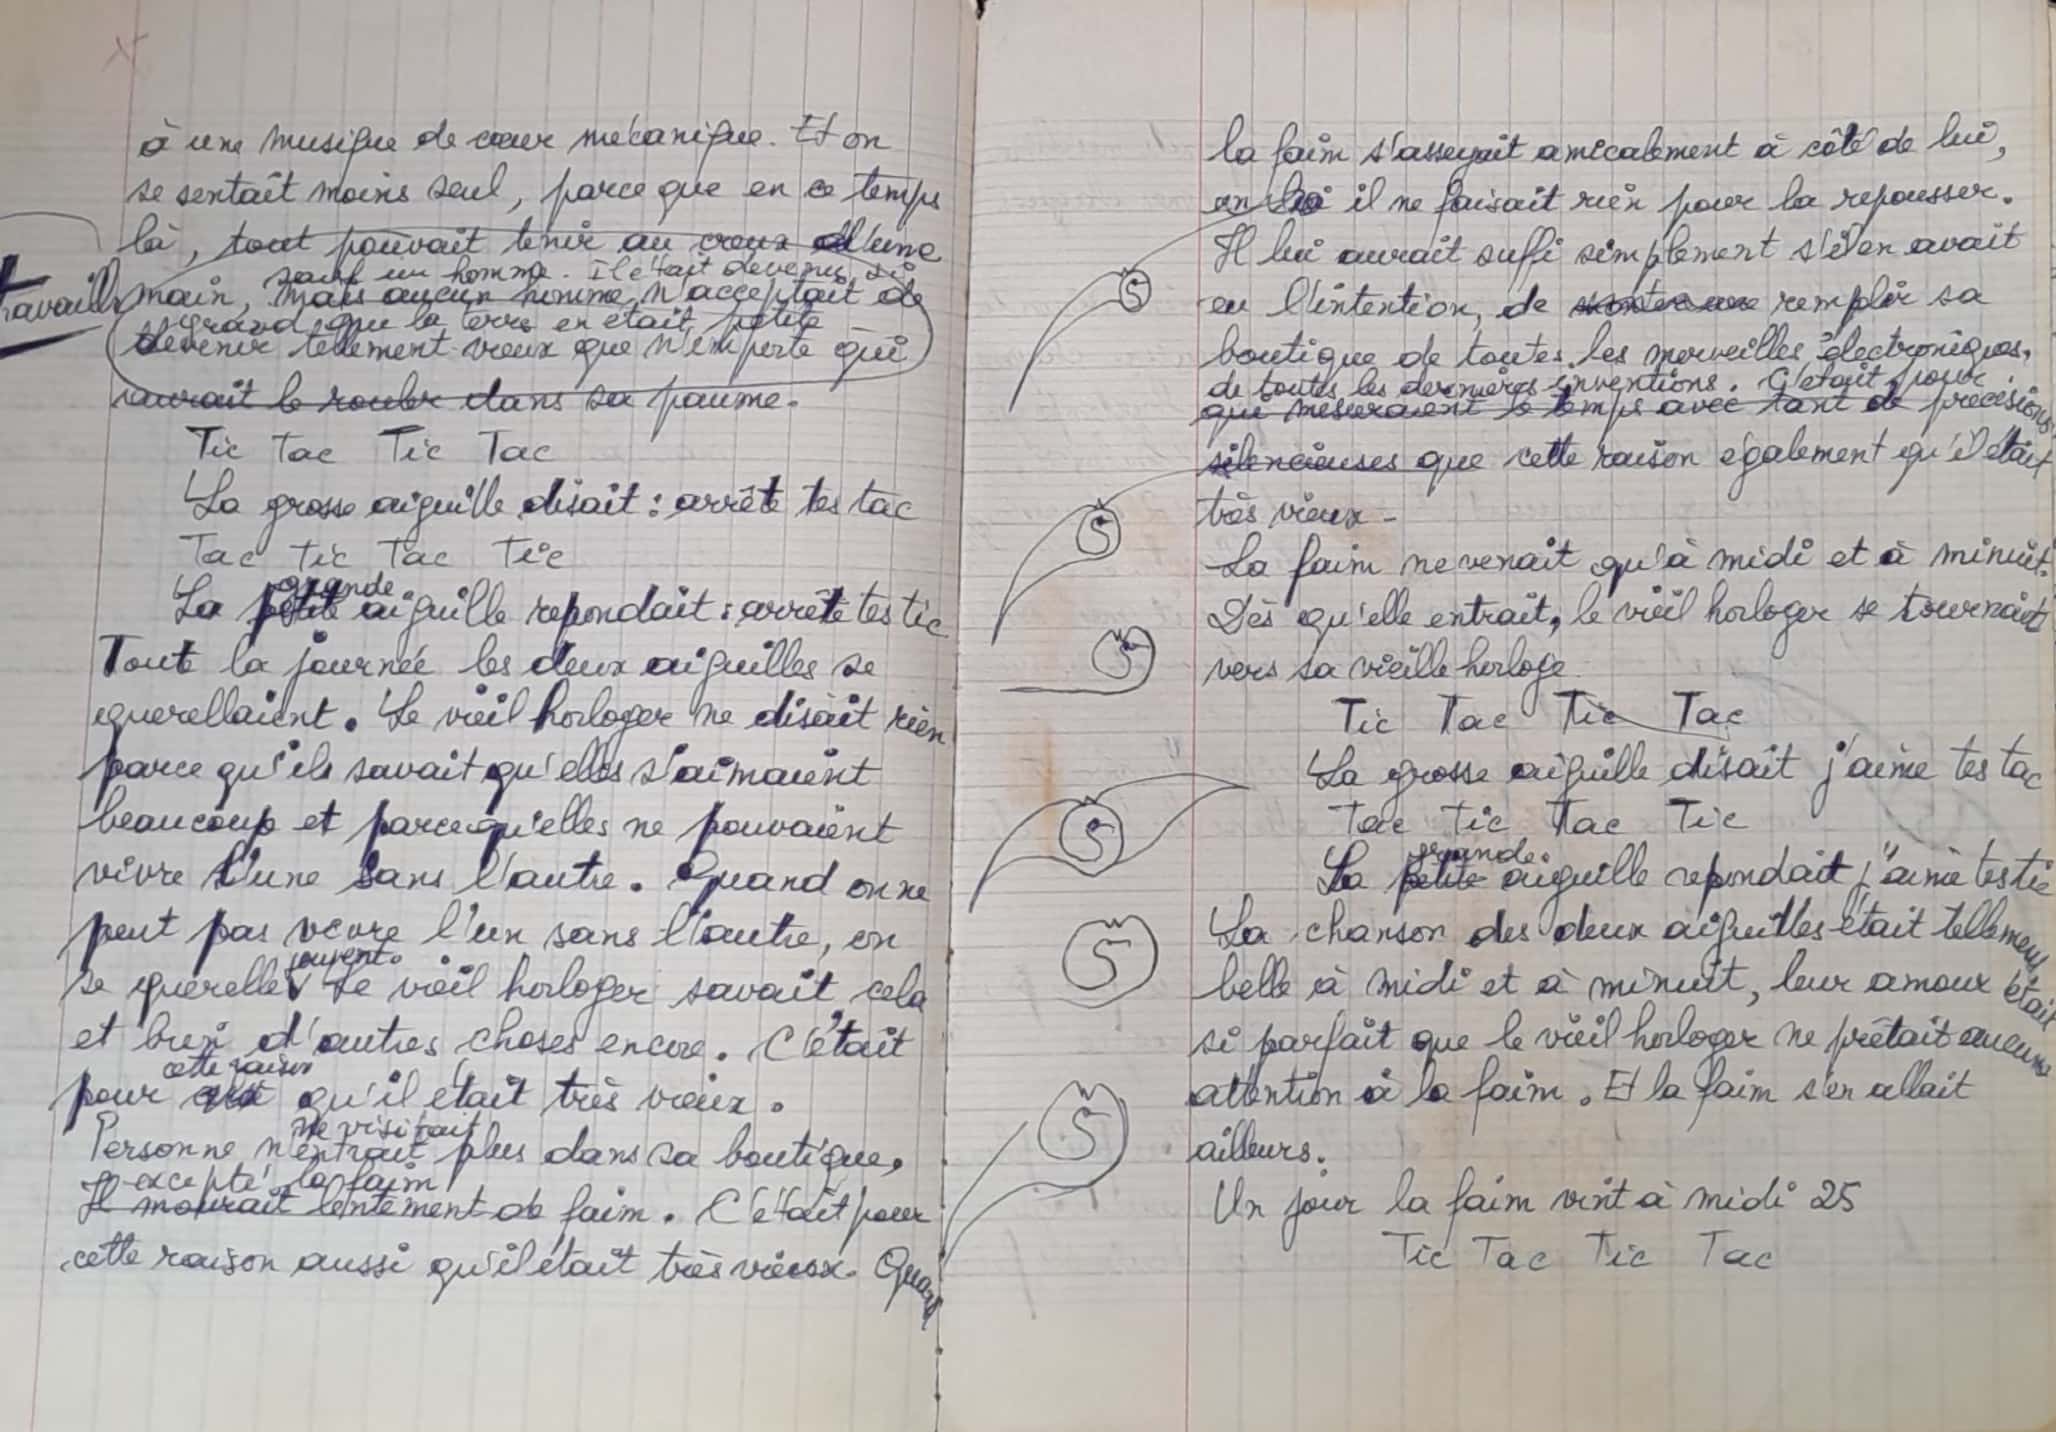 à une musique de cœur mécanique. Et on
se sentait moins seul, parce que en ce temps
là, tout pouvait tenir au creux d'une
sauf un homme. Il était devenu si
travailler main, mais aucun homme n'acceptait de
grand que la terre en était petite
devenir tellement vieux que n'importe qui
saurait le rouler dans sa paume.
Tic Tac Tic Tac
La grosse aiguille disait : arrête tes tac
Tac Tic Tac Tic
grande
La petite aiguille repondait : arrête tes tic
Toute la journée les deux aiguilles se
querellaient. Le vieil horloger ne disait rien
parce qu'ils savait qu'elles s'aimaient
beaucoup et parcequ'elles ne pouvaient
vivre l'une sans l'autre. Quand on ne
peut pas vivre l'un sans l'autre, on
souvent.
se querelle Le vieil horloger savait cela
et bien d'autres choses encore. C'était
cette raison
pour qu'il était très vieux.
ne visitait
Personne n'entrait plus dans sa boutique,
excepté la faim
Il mourait lentement de faim. C'était pour
cette raison aussi qu'il était très vieux. Quand
la faim s'asseyait amicalement à côté de lui,
il ne faisait rien pour la repousser.
Il lui aurait suffi simplement s'il en avait
eu l'intention, de remplir sa
boutique de toutes les merveilles électroniques,
de toutes les dernières inventions. C'était pour
qui mesuraient le temps avec tant de précisions
silencieuses que cette raison également qu'il était
très vieux -
La faim ne venait qu'à midi et à minuit.
Dès qu'elle entrait, le vieil horloger se tournait
vers sa vieille horloge.
Tic Tac Tic Tac
La grosse aiguille disait j'aime tes tac
Tac Tic Tac Tic
grande
La petite aiguille repondait j'aime tes tic
La chanson des deux aiguilles était tellement
belle à midi et à minuit, leur amour était
si parfait que le vieil horloger ne prêtait aucune
attention à la faim. Et la faim s'en allait
ailleurs.
Un jour la faim vint à midi 25
Tic Tac Tic Tac
S
S
S
S
S
S